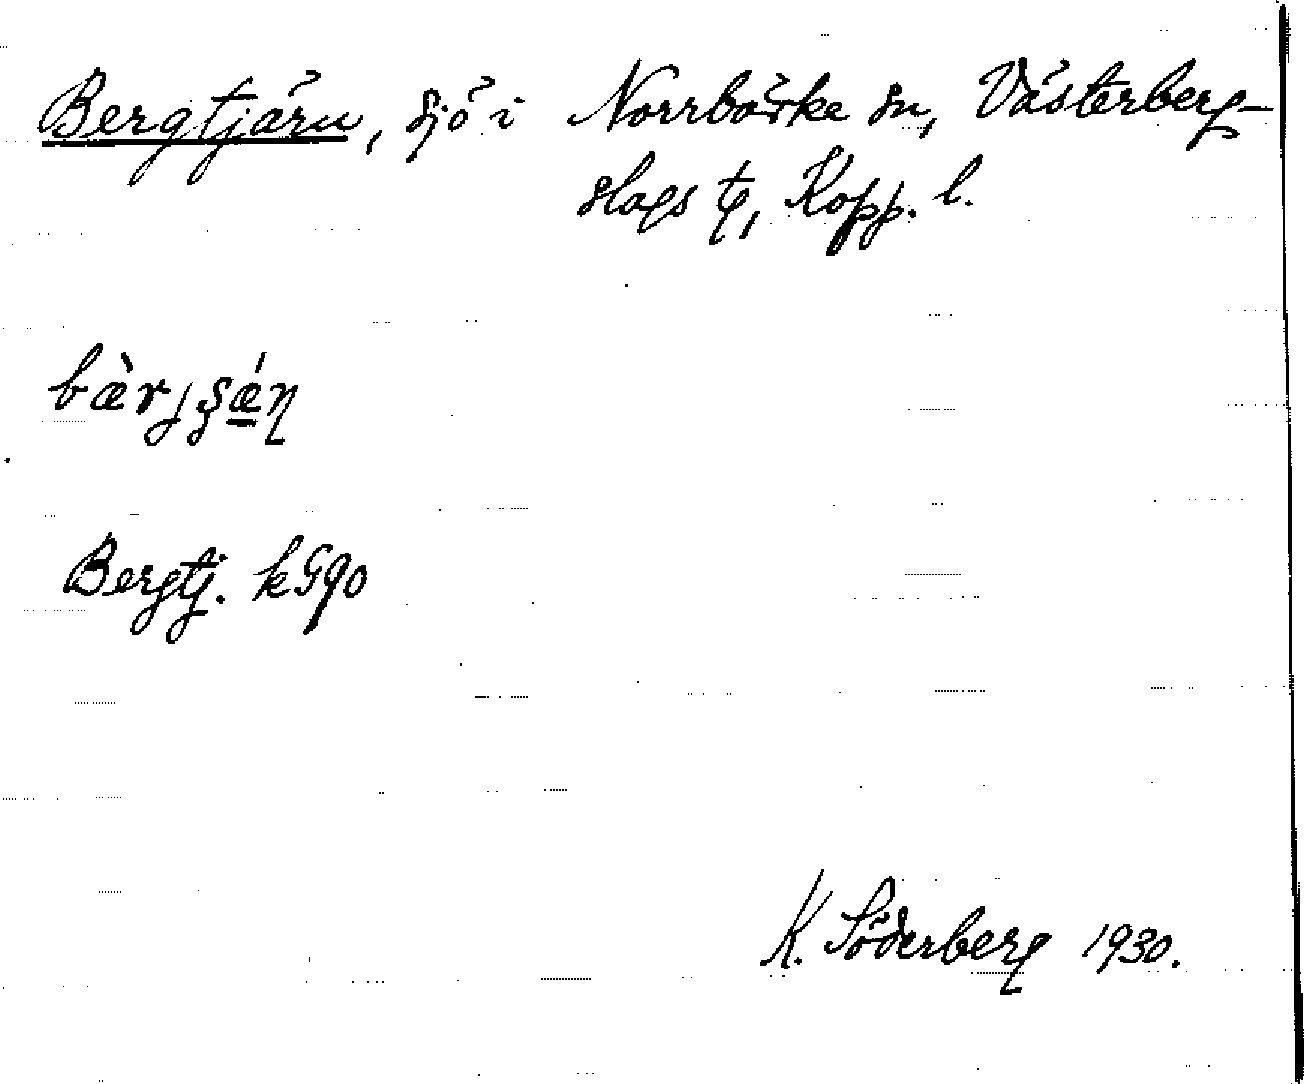 Bergtjärn, sjö i Norrbärke sn, Västerberg-
slags tg, Kopp. l.
bæ̀rjʂǽɳ
Bergtj. k590
K. Söderberg 1930.